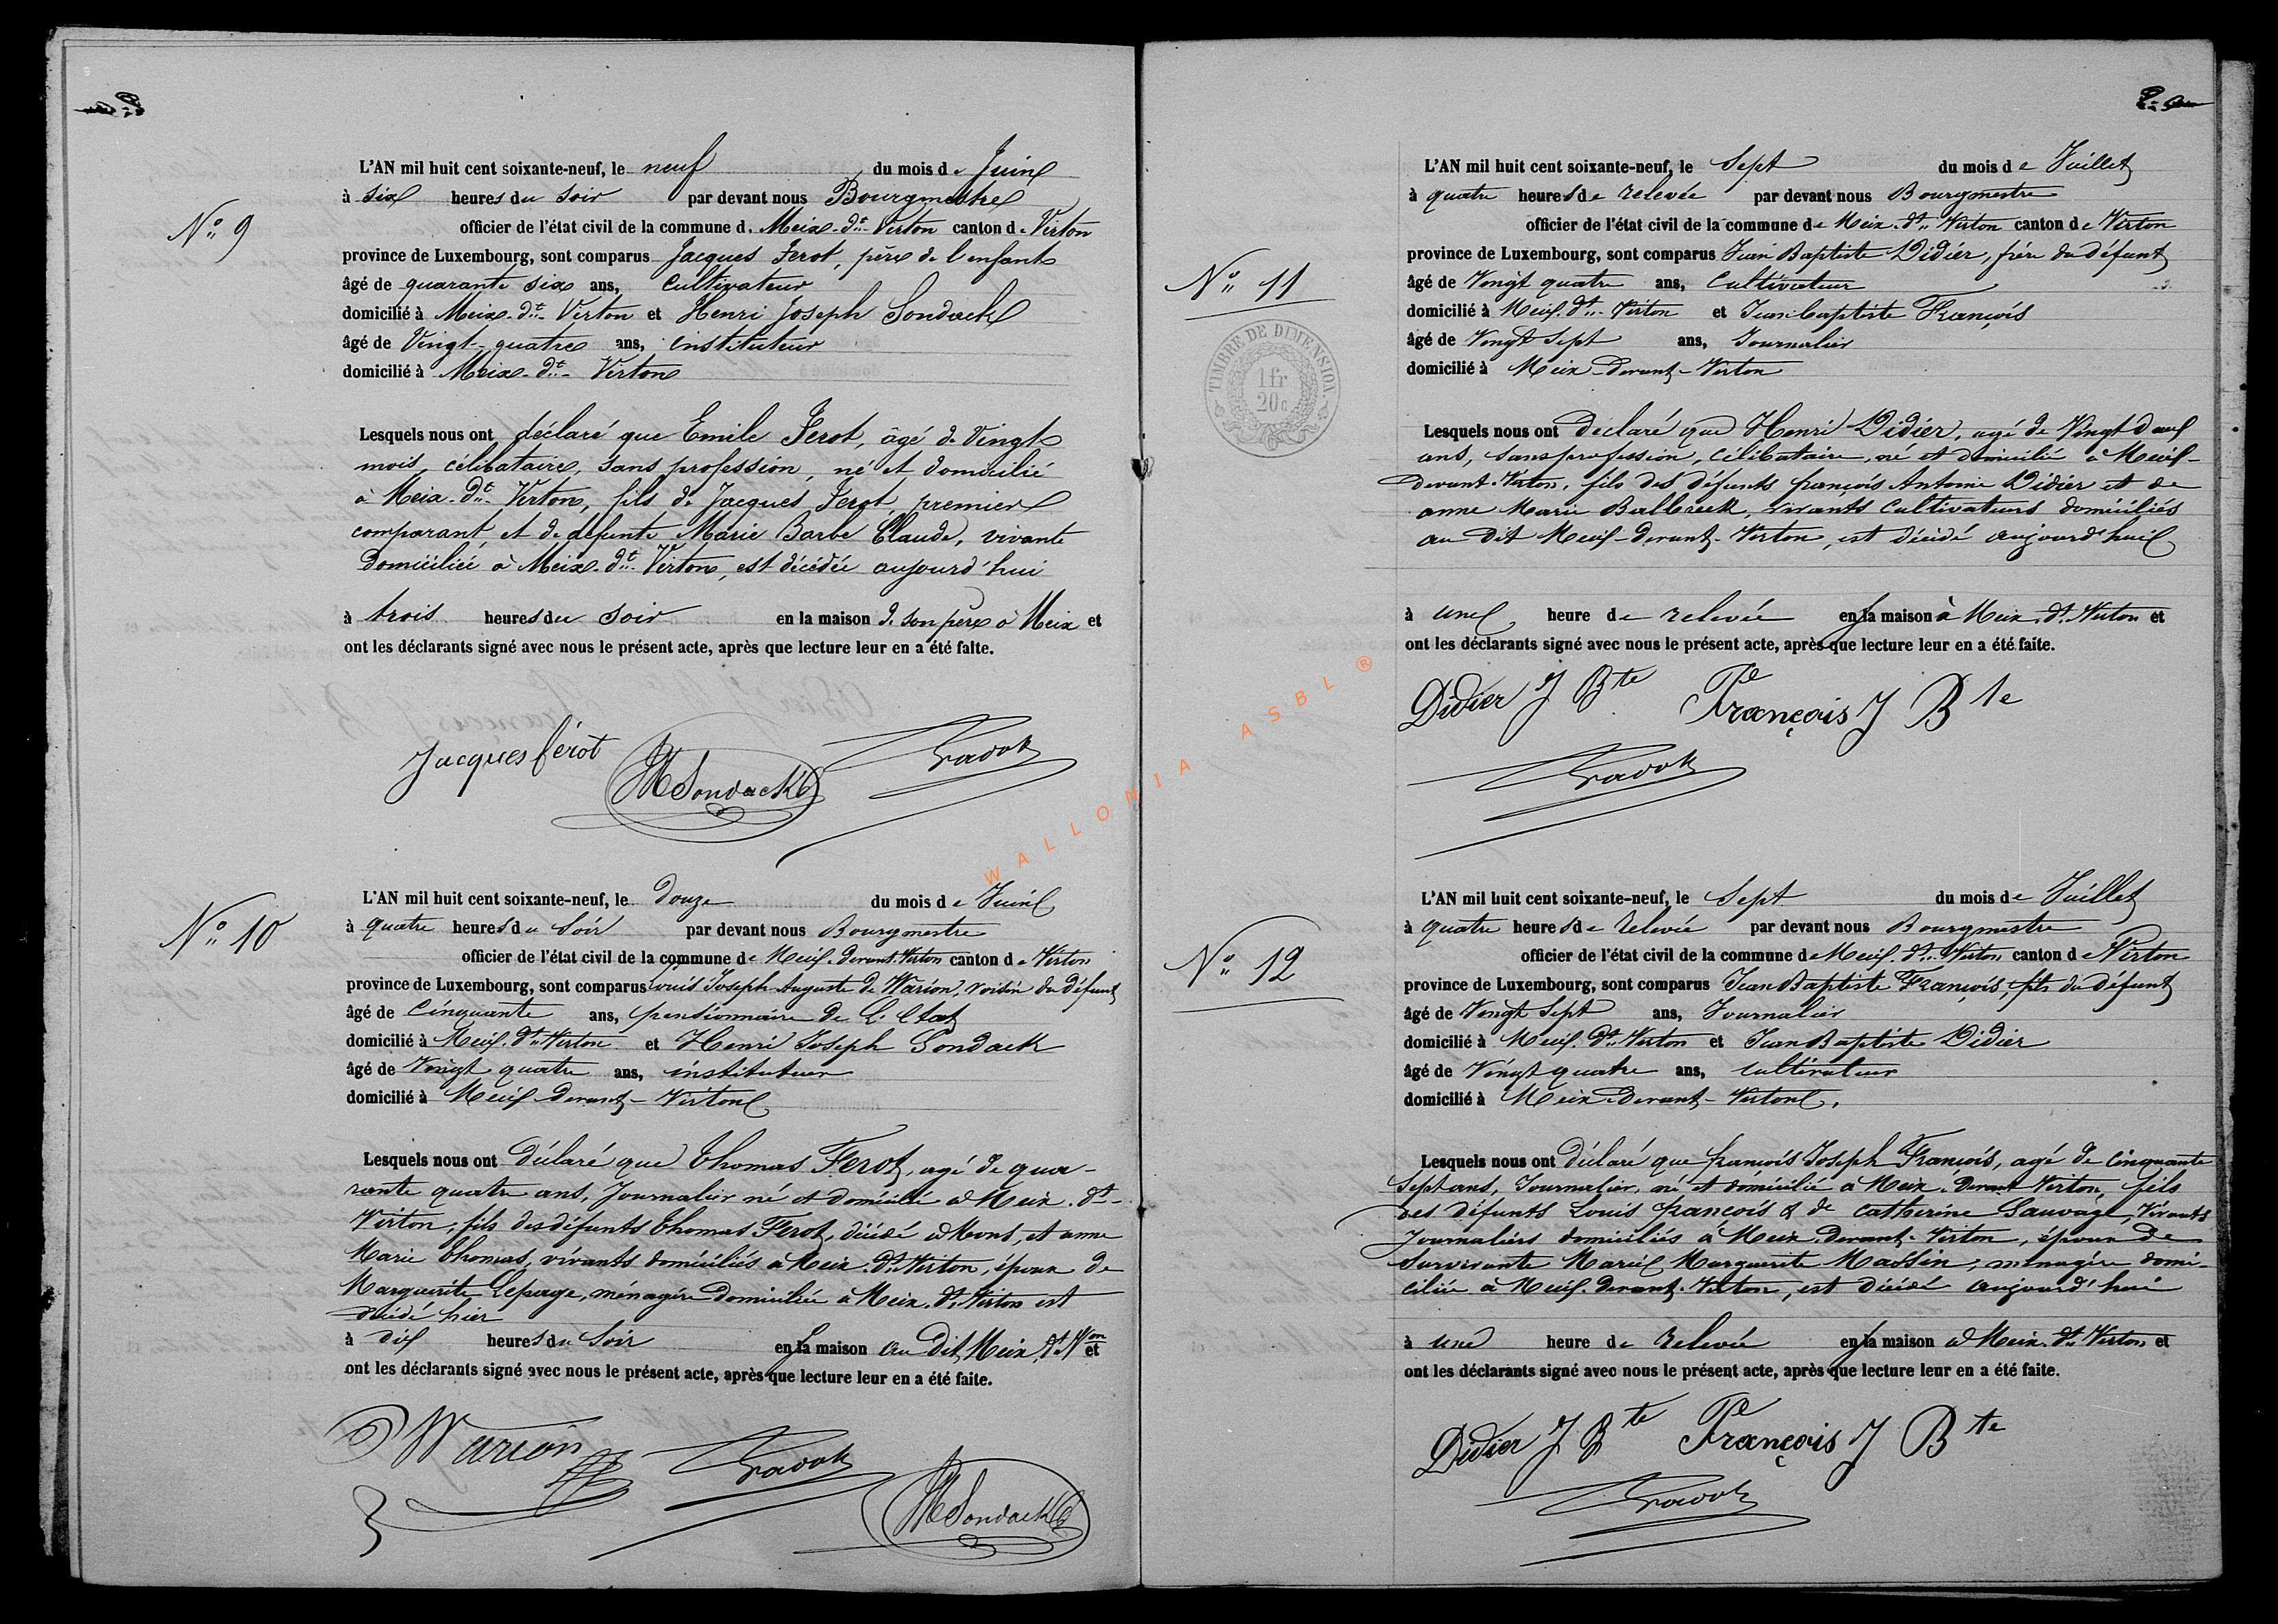 L'AN mil huit cent soixante-neuf, le neuf du mois de Juin
à six heures du soir par devant nous Bourgmestre
officier de l'état civil de la commune d. Meix-dt-Virton canton de Virton
province de Luxembourg, sont comparus Jacques Ferot, père de l'enfant
N° 9
âgé de quarante six ans, Cultivateur
domicilié à Meix-dt-Virton et Henri Joseph Sondack
âgé de Vingt-quatre ans, instituteur
domicilié à Meix-dt-Virton
Lesquels nous ont déclaré que Emile Ferot, âgé de Vingt
mois, célibataire, sans profession, né et domicilié
à Meix-dt-Virton, fils de Jacques Ferot, premier
comparant, et de défunte Marie Barbe Claude, vivante
Domiciliée à Meix-dt-Virton, est décédée aujourd'hui
à trois heures du soir en la maison de son père à Meix et
ont les déclarants signé avec nous le présent acte, après que lecture leur en a été faite.
Jacques ferot
HSondack
N° 10
L'AN mil huit cent soixante-neuf, le Douze du mois de Juin
à quatre heures du Soir par devant nous Bourgmestre
officier de l'état civil de la commune de Meix-devant-Virton canton de Virton
province de Luxembourg, sont comparus Louis Joseph Auguste de Warion, voisin du Défunt
âgé de Cinquante ans, pensionnaire de L'Etat
domicilié à Meix-dt-Virton et Henri Joseph Sondack
âgé de Vingt quatre ans, instituteur
domicilié à Meix-devant-Virton
Lesquels nous ont déclaré que Thomas Ferot, agé de qua-
rante quatre ans, Journalier né et domicilié à Meix-dt-
Virton, fils des défunts Thomas Ferot, décédé à Mons, et anne
Marie Thomas, vivants domiciliés à Meix-dt-Virton, époux de
Marguerite Lepage, ménagère Domiciliée à Meix-dt-Virton est
décédé hier
à dix heures du Soir en la maison au Dit Meix dt Von et
ont les déclarants signé avec nous le présent acte, après que lecture leur en a été faite.
Warion
HSondack
N° 11
TIMBRE DE DIMENSION
1fr
20c
L'AN mil huit cent soixante-neuf, le Sept du mois de Juillet
à quatre heures de relevée par devant nous Bourgmestre
officier de l'état civil de la commune de Meix-dt-Virton canton de Virton
province de Luxembourg, sont comparus Jean Baptiste Didier, frère du défunt
âgé de Vingt quatre ans, Cultivateur
domicilié à Meix-dt-Virton et Jean baptiste François
âgé de Vingt Sept ans, Journalier
domicilié à Meix-Devant-Virton
Lesquels nous ont Declaré que Henri Didier, agé de Vingt deux
ans, sans profession, célibataire, né et domicilié à Meix-
devant-Virton, fils des défunts françois Antoine Didier et de
anne Marie Balbreck, vivants Cultivateurs domiciliés
au Dit Meix-devant-Virton, est décédé aujourd'hui
à une heure de relevée en la maison à Meix-dt-Virton et
ont les déclarants signé avec nous le présent acte, après que lecture leur en a été faite.
Didier J Bte François J Bte
N° 12
L'AN mil huit cent soixante-neuf, le Sept du mois de Juillet
à quatre heures de relevée par devant nous Bourgmestre
officier de l'état civil de la commune de Meix-dt-Virton canton de Virton
province de Luxembourg, sont comparus Jean Baptiste François, fils du défunt
âgé de Vingt Sept ans, Journalier
domicilié à Meix-dt-Virton et Jean Baptiste Didier
âgé de Vingt quatre ans, cultivateur
domicilié à Meix-Devant-Virton.
Lesquels nous ont déclaré que françois Joseph François, agé de Cinquante
Sept ans, Journalier, né et domicilié à Meix-Devant-Virton, fils
des défunts Louis françois & de catherine Sauvage, Vivants
Journaliers domiciliés à Meix-Devant-Virton, époux de
survivante Marie Marguerite Massin, ménagère domi-
ciliée à Meix-devant-Virton, est Décédé aujourd'hui
à une heure de relevée en la maison à Meix-dt-Virton et
ont les déclarants signé avec nous le présent acte, après que lecture leur en a été faite.
Didier J Bte François J Bte
WALLONIA ASBL ®